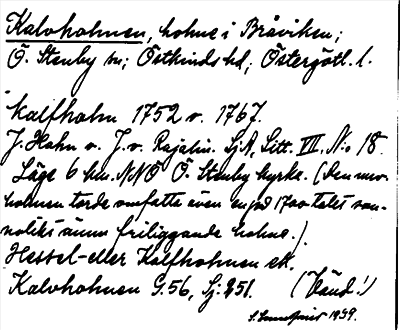 Kalvholmen, holme i Bråviken;
Ö. Stenby sn; Östkinds hd; Östergötl. l.
Kalfholm 1752 o. 1767.
J. Hahn o. J. v. Rajalin. SjA, Litt. VII. No 18.
Läge 6 km. NNÖ Ö. Stenby kyrka. (Den nuv.
holmen torde omfatta även en på 1700-talet san-
nolikt ännu friliggande holme.)
Hessel- eller Kalfholmen ek.
Kalvholmen G.56, Sj: 251. (Vänd!)
1939.